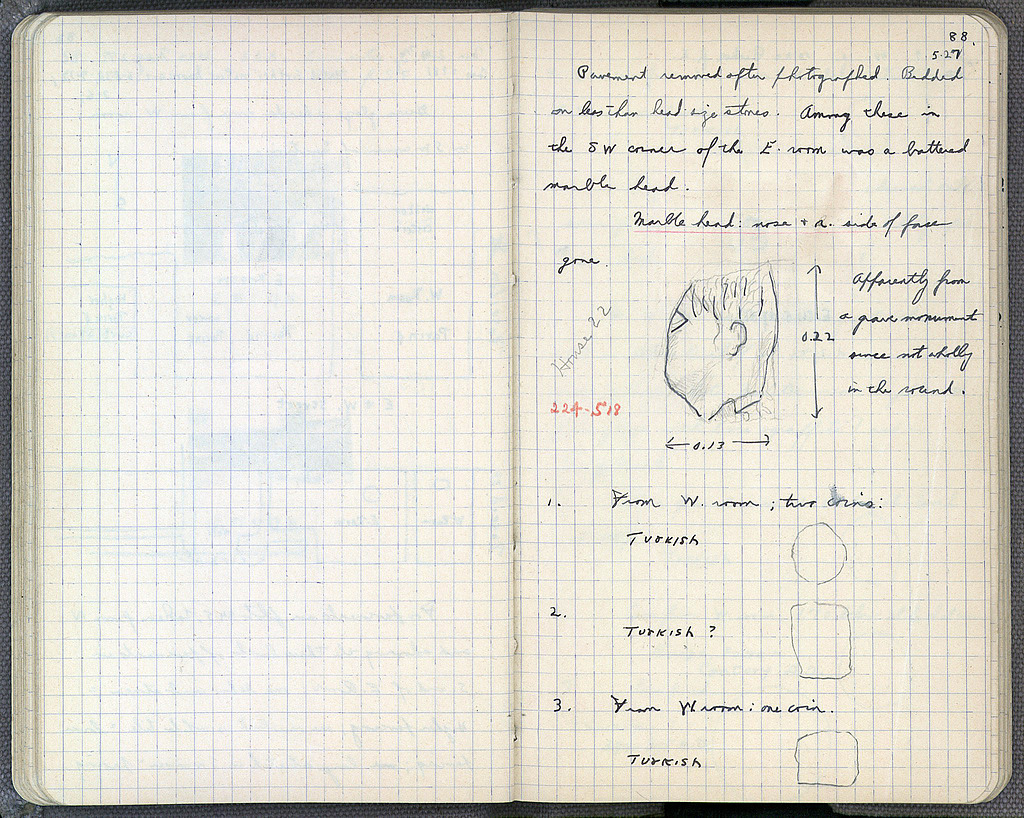 88.
5.27
Pavement removed after photographed. Bedded
on less than head-size stones. Among these in
the SW corner of the E. room was a battered
marble head.
Marble head: nose + r. side of face
gone.
Apparently from
a grave monument
since not wholly
in the round.
0.22
House 22
224-518
0.13
1. From W. room; two coins:
Turkish
2.
Turkish ?
3. From W room: one coin.
Turkish